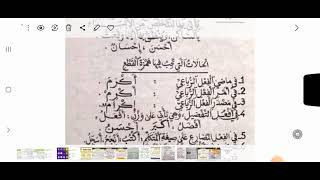 أَحْسَنَ ، إِحْسَان .
الحالات التي تجب فيها همزة القطع
1. في ماضي الفعل الرباعيّ : أَكْرَمَ .
2. في أمر الفعل الرباعيّ : أَكْرِمْ .
3. في مصدر الفعل الرباعيّ : إِكْرَام .
4. في أفعل التفضيل، وهي تأتي على وزن : أَفْعَل،
أفضل ، أكبر ، أحسن
5. في الفعل المضارع على صيغة المتكلم : أكتب